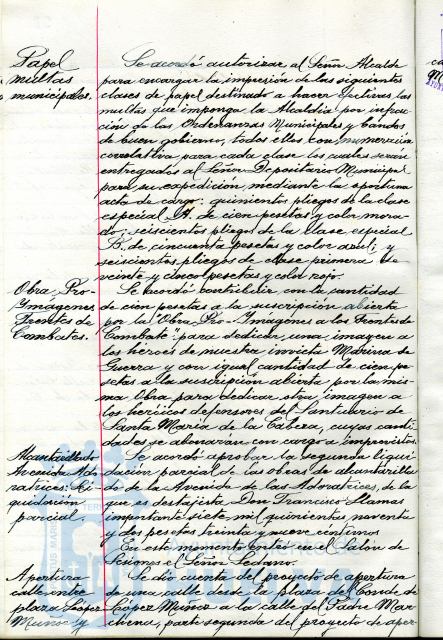 Papel
multas
municipales.
Se acordó autorizar al Señor Alcalde
para encargar la impresión de las siguientes
clases de papel destinado a hacer efectivas las
multas que imponga la Alcaldía por infrac-
ción de las Ordenanzas Municipales y bandos
de buen gobierno, todos ellos con numeración
correlativa para cada clase los cuales serán
entregados al Señor Depositario Municipal
para su expedición, mediante la oportuna
acta de cargo: quinientos pliegos de la clase
especial A. de cien pesetas y color mora-
do; seiscientos pliegos de la clase especial
B. de cincuenta pesetas y color azul; y
seiscientos pliegos de clase primera de
veinte y cinco pesetas y color rojo.
Obra "Pro-
Imágenes
Frentes de
Combates.
Se acordó contribuir con la cantidad
de cien pesetas a la suscripción abierta
por la "Obra Pro-Imágenes a los Frentes de
Combate" para dedicar una imagen a
los héroes de nuestra invicta Marina de
Guerra y con igual cantidad de cien pe-
setas a la suscripción abierta por la mis-
ma Obra para dedicar otra imagen a
los heróicos defensores del Santuario de
Santa María de la Cabeza, cuyas canti-
dades se abonarán con cargo a imprevistos.
Alcantarillado
Avenida Ado-
ratrices. Li-
quidación
parcial.
Se acordó aprobar la segunda liqui-
dación parcial de las obras de alcantarilla-
do de la Avenida de las Adoratrices, de la
que es destajista Don Francisco Llamas
importante siete mil quinientas noventa
y dos pesetas treinta y nueve céntimos
En este momento entró en el Salón de
Sesiones el Señor Sedano.
Apertura
calle entre
plaza López
Muñoz y
Se dio cuenta del proyecto de apertura
de una calle desde la plaza del Conde de
López Muñoz a la calle del Padre Mar-
chena, parte segunda del proyecto de aper-